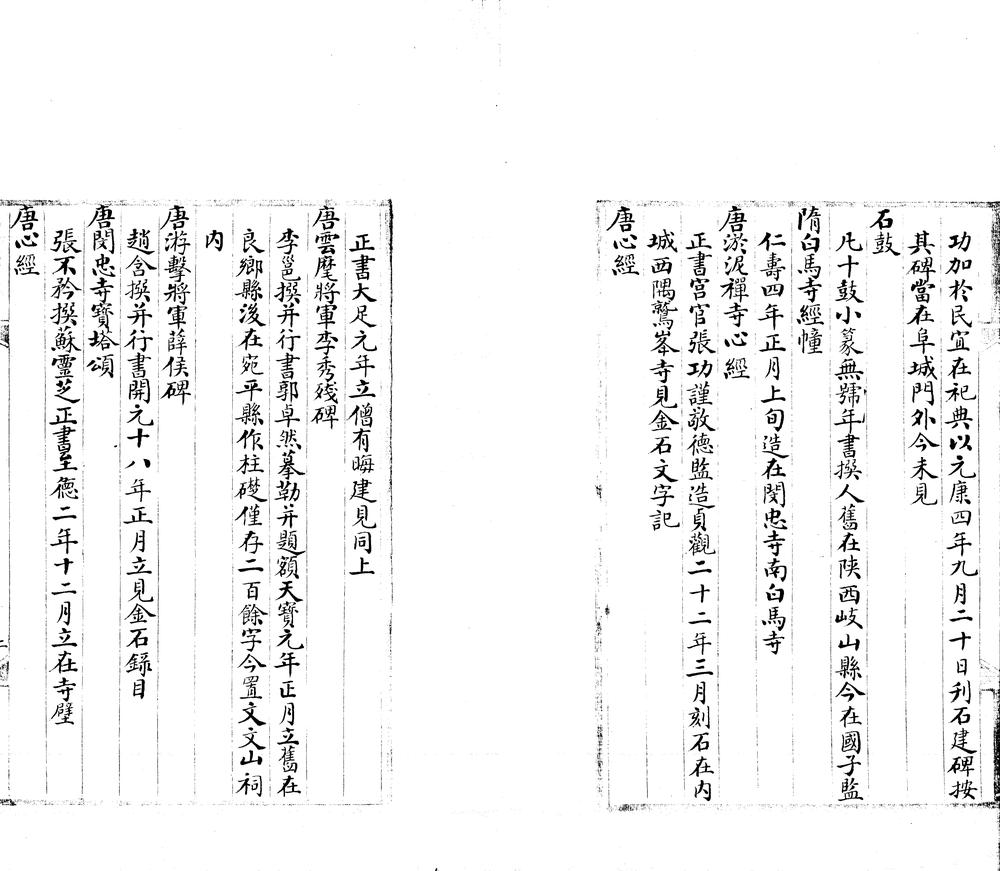 功加於民宜在祀典以元康四年九月二十日刋石建碑按
其碑當在阜城門外今未見
石鼓
凡十鼓小篆無號年書撰人舊在陕西岐山縣今在國子監
隋白馬寺經幢
仁壽四年正月上旬造在閔忠寺南白馬寺
唐淤泥禪寺心經
正書宫官張功謹敬德監造貞觀二十二年三月刻石在内
城西隅鷲峯寺見金石文字記
唐心經
正書大足元年立僧有晦建見同上
唐雲麾將軍李秀殘碑
李邕撰并行書郭卓然摹勒并題額天寶元年正月立舊在
良鄉縣後在宛平縣作柱礎僅存二百餘字今置文文山祠
内
唐游擊將軍薛侯碑
趙含撰并行書開元十八年正月立見金石錄目
唐閔忠寺寶塔頌
張不矜撰蘇靈芝正書至德二年十二月立在寺壁
唐心經